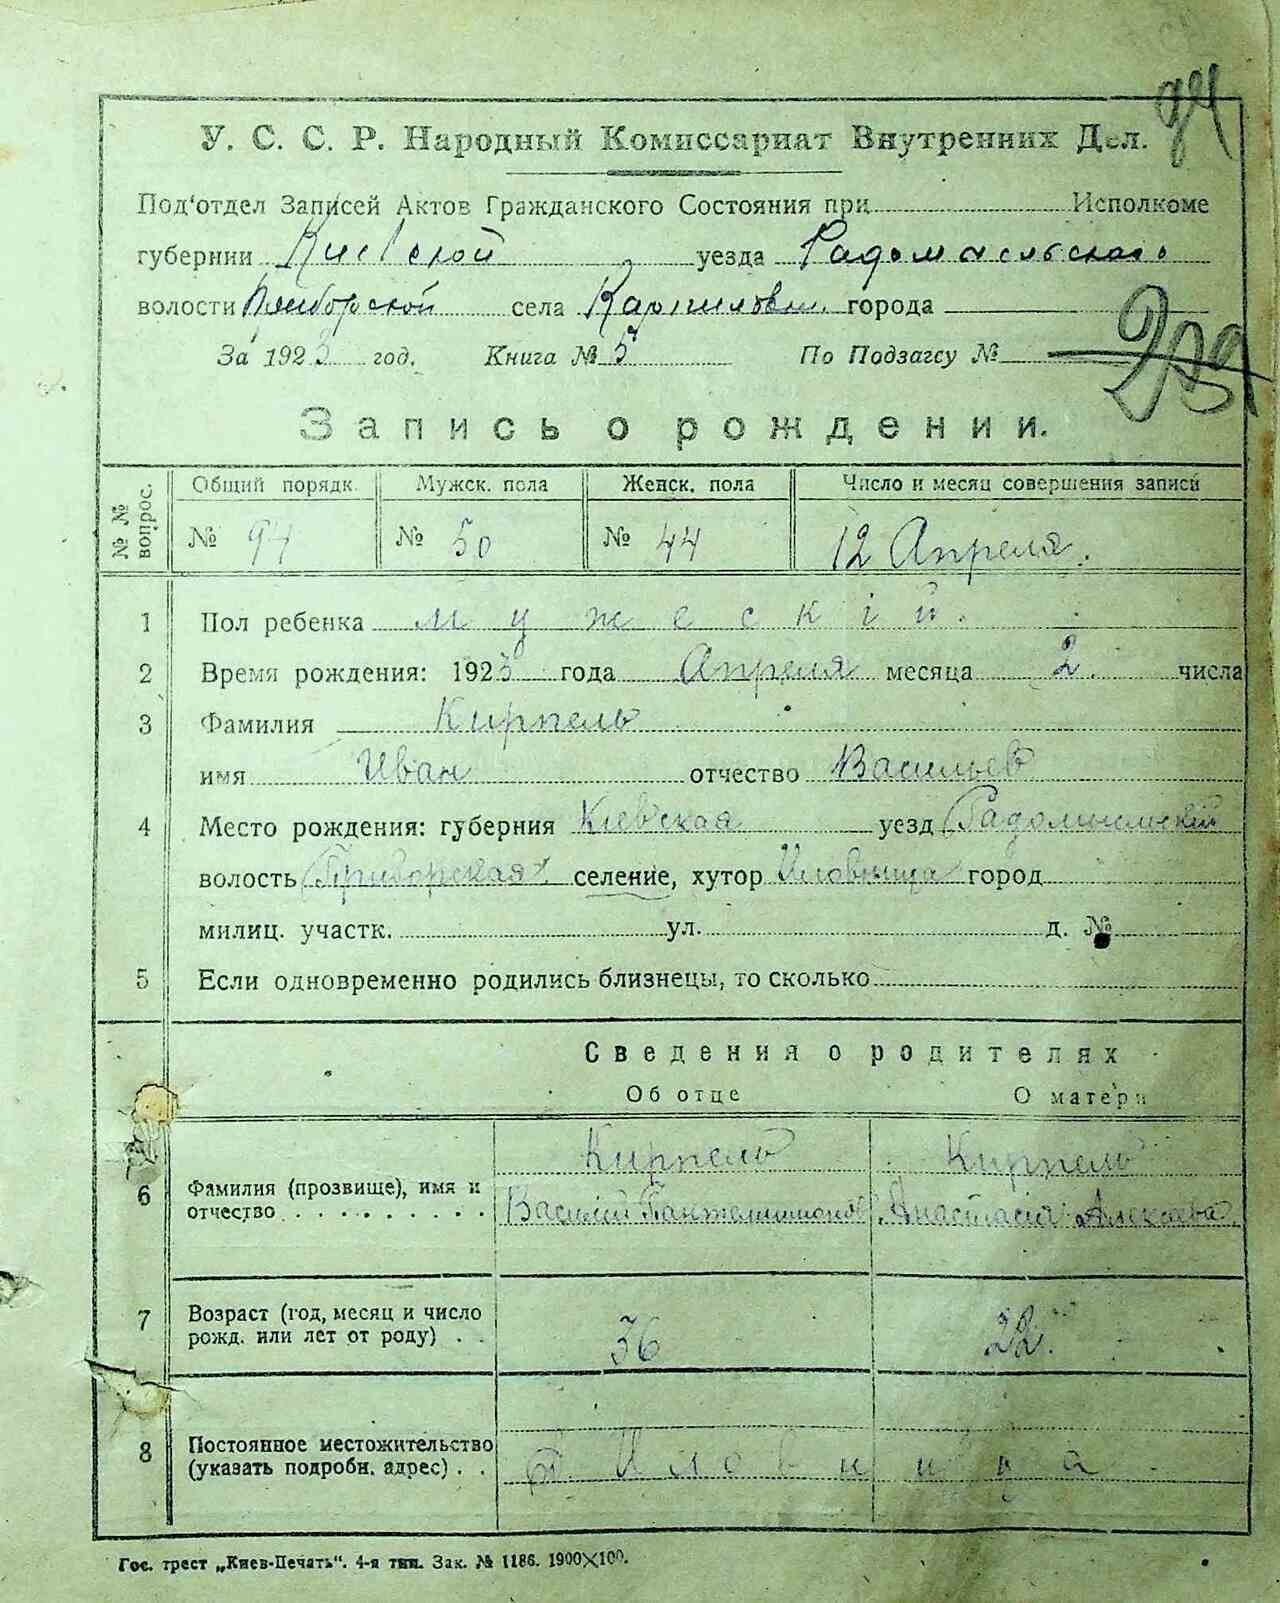 94
У. С. С. Р. Народный Комиссариат Внутренних Дел.
Под‘отдел Записей Актов Гражданского Состояния при Исполкоме
губернии Киевской уезда Радомысльскаго
волости Приборской села Карпиловки города
За 1923 год. Книга № 5 По Подзагсу №
Запись о рождении.
№ № вопрос. Общий порядк. Мужск. пола Женск. пола Число и месяц совершения записи
№ 94 № 50 № 44 12 Апреля.
1 Пол ребенка мужескій.
2 Время рождения: 1923 года Апреля месяца 2 числа
3 Фамилия Кирпель
имя Иван отчество Васильев
4 Место рождения: губерния Киевская уезд Радомысльскій
волость Приборская селение, хутор Иловница город
милиц. участк. ул. д. №
5 Если одновременно родились близнецы, то сколько
Сведения о родителях
Об отце О матери
Кирпель Кирпель
6 Фамилия (прозвище), имя и
отчество Василій Пантелимонов Анастасія Алексеева
7 Возраст (год, месяц и число
рожд. или лет от роду) 36 22.
8 Постоянное местожительство
(указать подробн. адрес) Иловница
Гос. трест „Киев-Печать“. 4-я тип. Зак. № 1186. 1900×100.